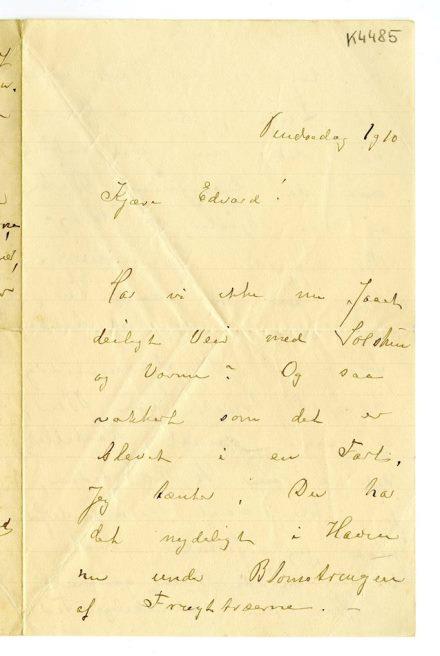 K4485
Kjære Edvard!
Har vi ikke nu faaet
deiligt Veir med Solskin
og Varme? Og saa
vakkert som det er
blevet i en Fart,
Jeg tænker, Du har
det nydeligt i Haven
nu under Blomstringen
af Frugttræerne. –